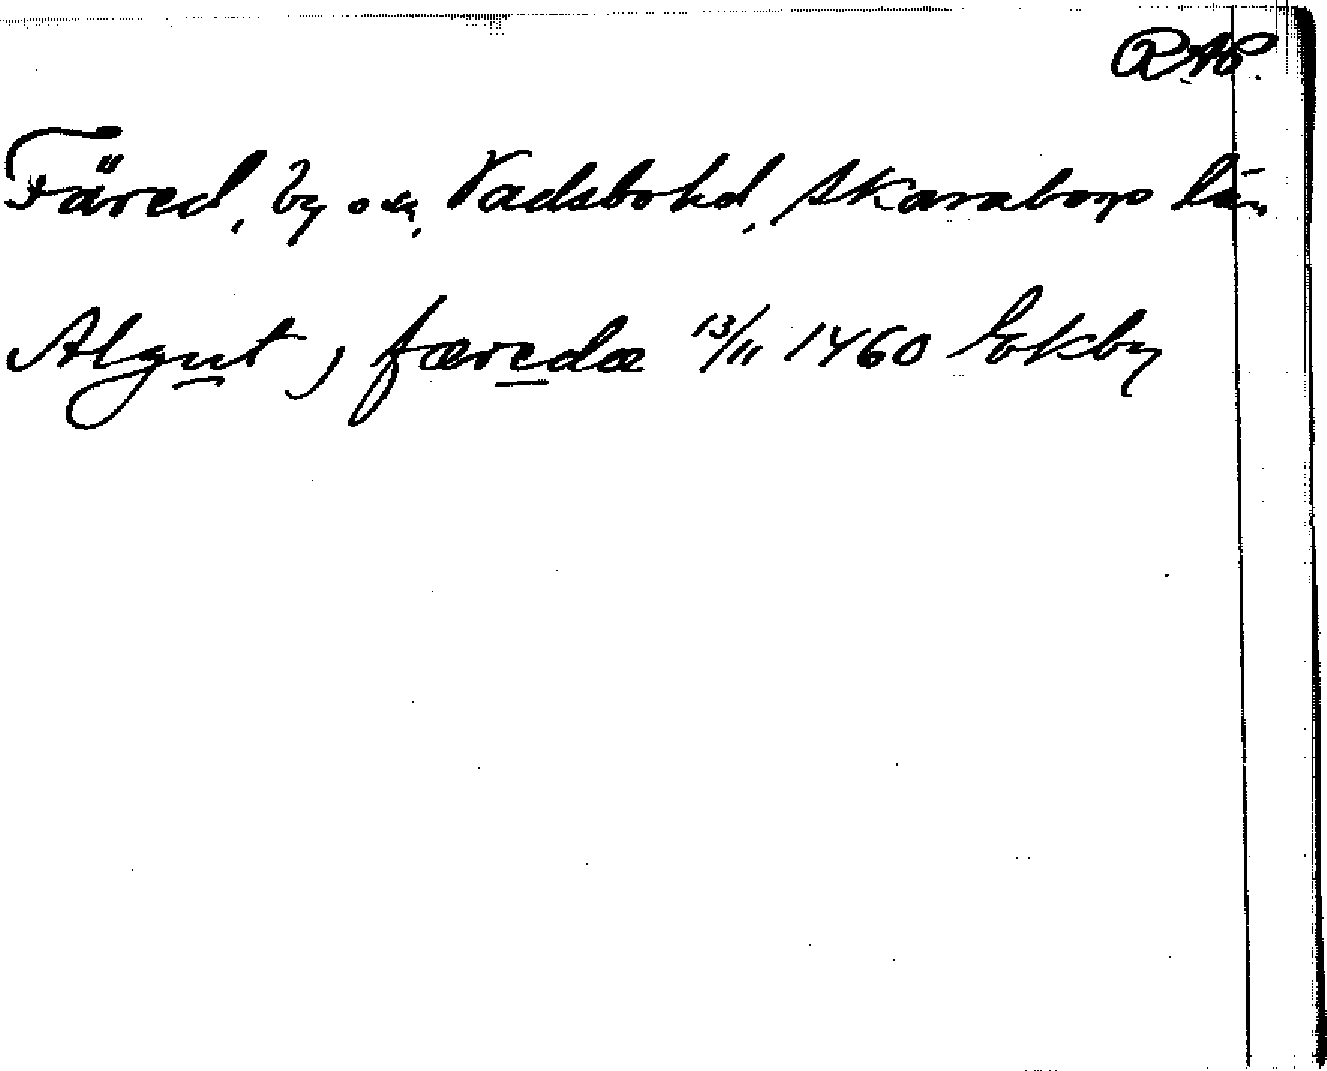 RAP.
Färed, by o. sn, Vadsbo hd, Skaraborgs län
Algut j færedæ 13/11 1460 Ekby